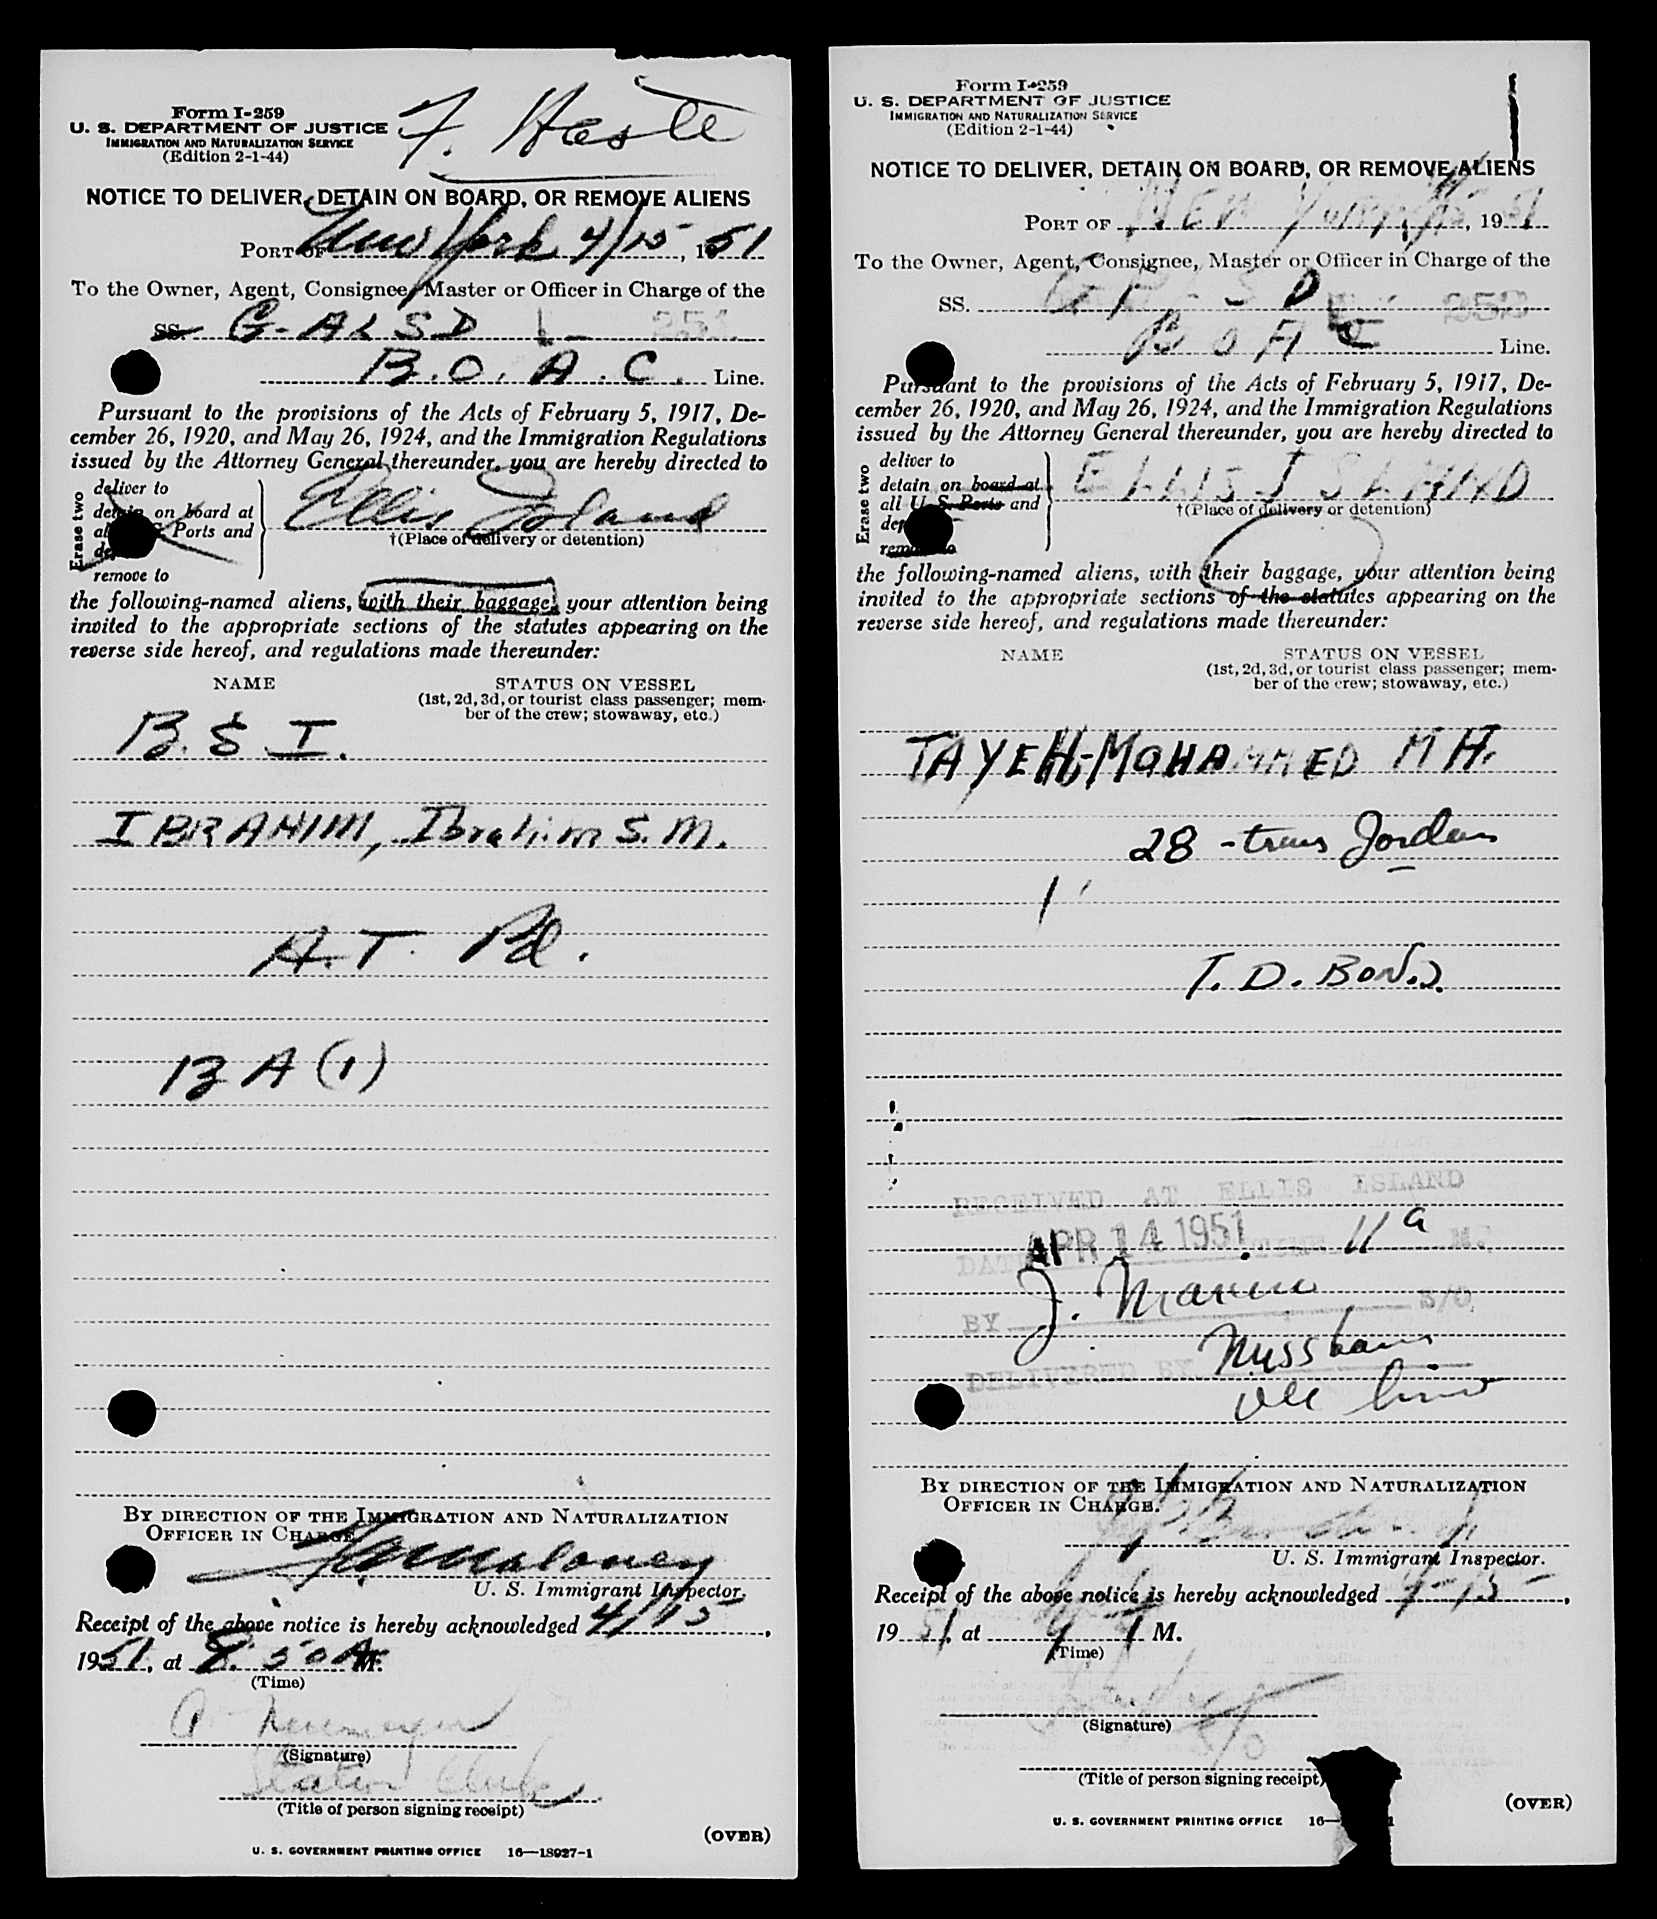 Form I-259
U. S. DEPARTMENT OF JUSTICE
IMMIGRATION AND NATURALIZATION SERVICE
(Edition 2-1-44)
F. Haste
NOTICE TO DELIVER, DETAIN ON BOARD, OR REMOVE ALIENS
PORT OF New York 4/15, 1951
To the Owner, Agent, Consignee, Master or Officer in Charge of the
SS. G-ALSD 1- 251
B.O.A.C. Line.
Pursuant to the provisions of the Acts of February 5, 1917, De-
cember 26, 1920, and May 26, 1924, and the Immigration Regulations
issued by the Attorney General thereunder, you are hereby directed to
Erase two
deliver to
detain on board at
Ports and
remove to
Ellis Island
†(Place of delivery or detention)
the following-named aliens, with their baggage, your attention being
invited to the appropriate sections of the statutes appearing on the
reverse side hereof, and regulations made thereunder:
NAME
STATUS ON VESSEL
(1st, 2d, 3d, or tourist class passenger; mem-
ber of the crew; stowaway, etc.)
B. S. I.
IBRAHIM, Ibrahim S. M.
A.T. Pd.
B A (1)
BY DIRECTION OF THE IMMIGRATION AND NATURALIZATION
OFFICER IN CHARGE.
Maloney
U. S. Immigrant Inspector.
Receipt of the above notice is hereby acknowledged 4/15,
1951, at 8:50 A M.
(Time)
(Signature)
Station Clerk
(Title of person signing receipt)
(OVER)
U. S. GOVERNMENT PRINTING OFFICE 16—18927-1
Form I-259
U. S. DEPARTMENT OF JUSTICE
IMMIGRATION AND NATURALIZATION SERVICE
(Edition 2-1-44)
NOTICE TO DELIVER, DETAIN ON BOARD, OR REMOVE ALIENS
PORT OF NEW York, 1951
To the Owner, Agent, Consignee, Master or Officer in Charge of the
SS. G-ALSD 252
BOAC Line.
Pursuant to the provisions of the Acts of February 5, 1917, De-
cember 26, 1920, and May 26, 1924, and the Immigration Regulations
issued by the Attorney General thereunder, you are hereby directed to
Erase two
deliver to
detain on board at
all U. S. Ports and
remove to
ELLIS ISLAND
†(Place of delivery or detention)
the following-named aliens, with their baggage, your attention being
invited to the appropriate sections of the statutes appearing on the
reverse side hereof, and regulations made thereunder:
NAME
STATUS ON VESSEL
(1st, 2d, 3d, or tourist class passenger; mem-
ber of the crew; stowaway, etc.)
TAYEH-MOHAMMED M H.
28 - trans Jordan
1
T. D. BOND.
RECEIVED AT ELLIS ISLAND
DATE APR 14 1951 TIME 11 a M.
BY J. Marino S/O
DELIVERED BY Nussbaum
BY DIRECTION OF THE IMMIGRATION AND NATURALIZATION
OFFICER IN CHARGE.
U. S. Immigrant Inspector.
Receipt of the above notice is hereby acknowledged 4-15,
1951, at M.
(Time)
(Signature)
S/O
(Title of person signing receipt)
(OVER)
U. S. GOVERNMENT PRINTING OFFICE 16—